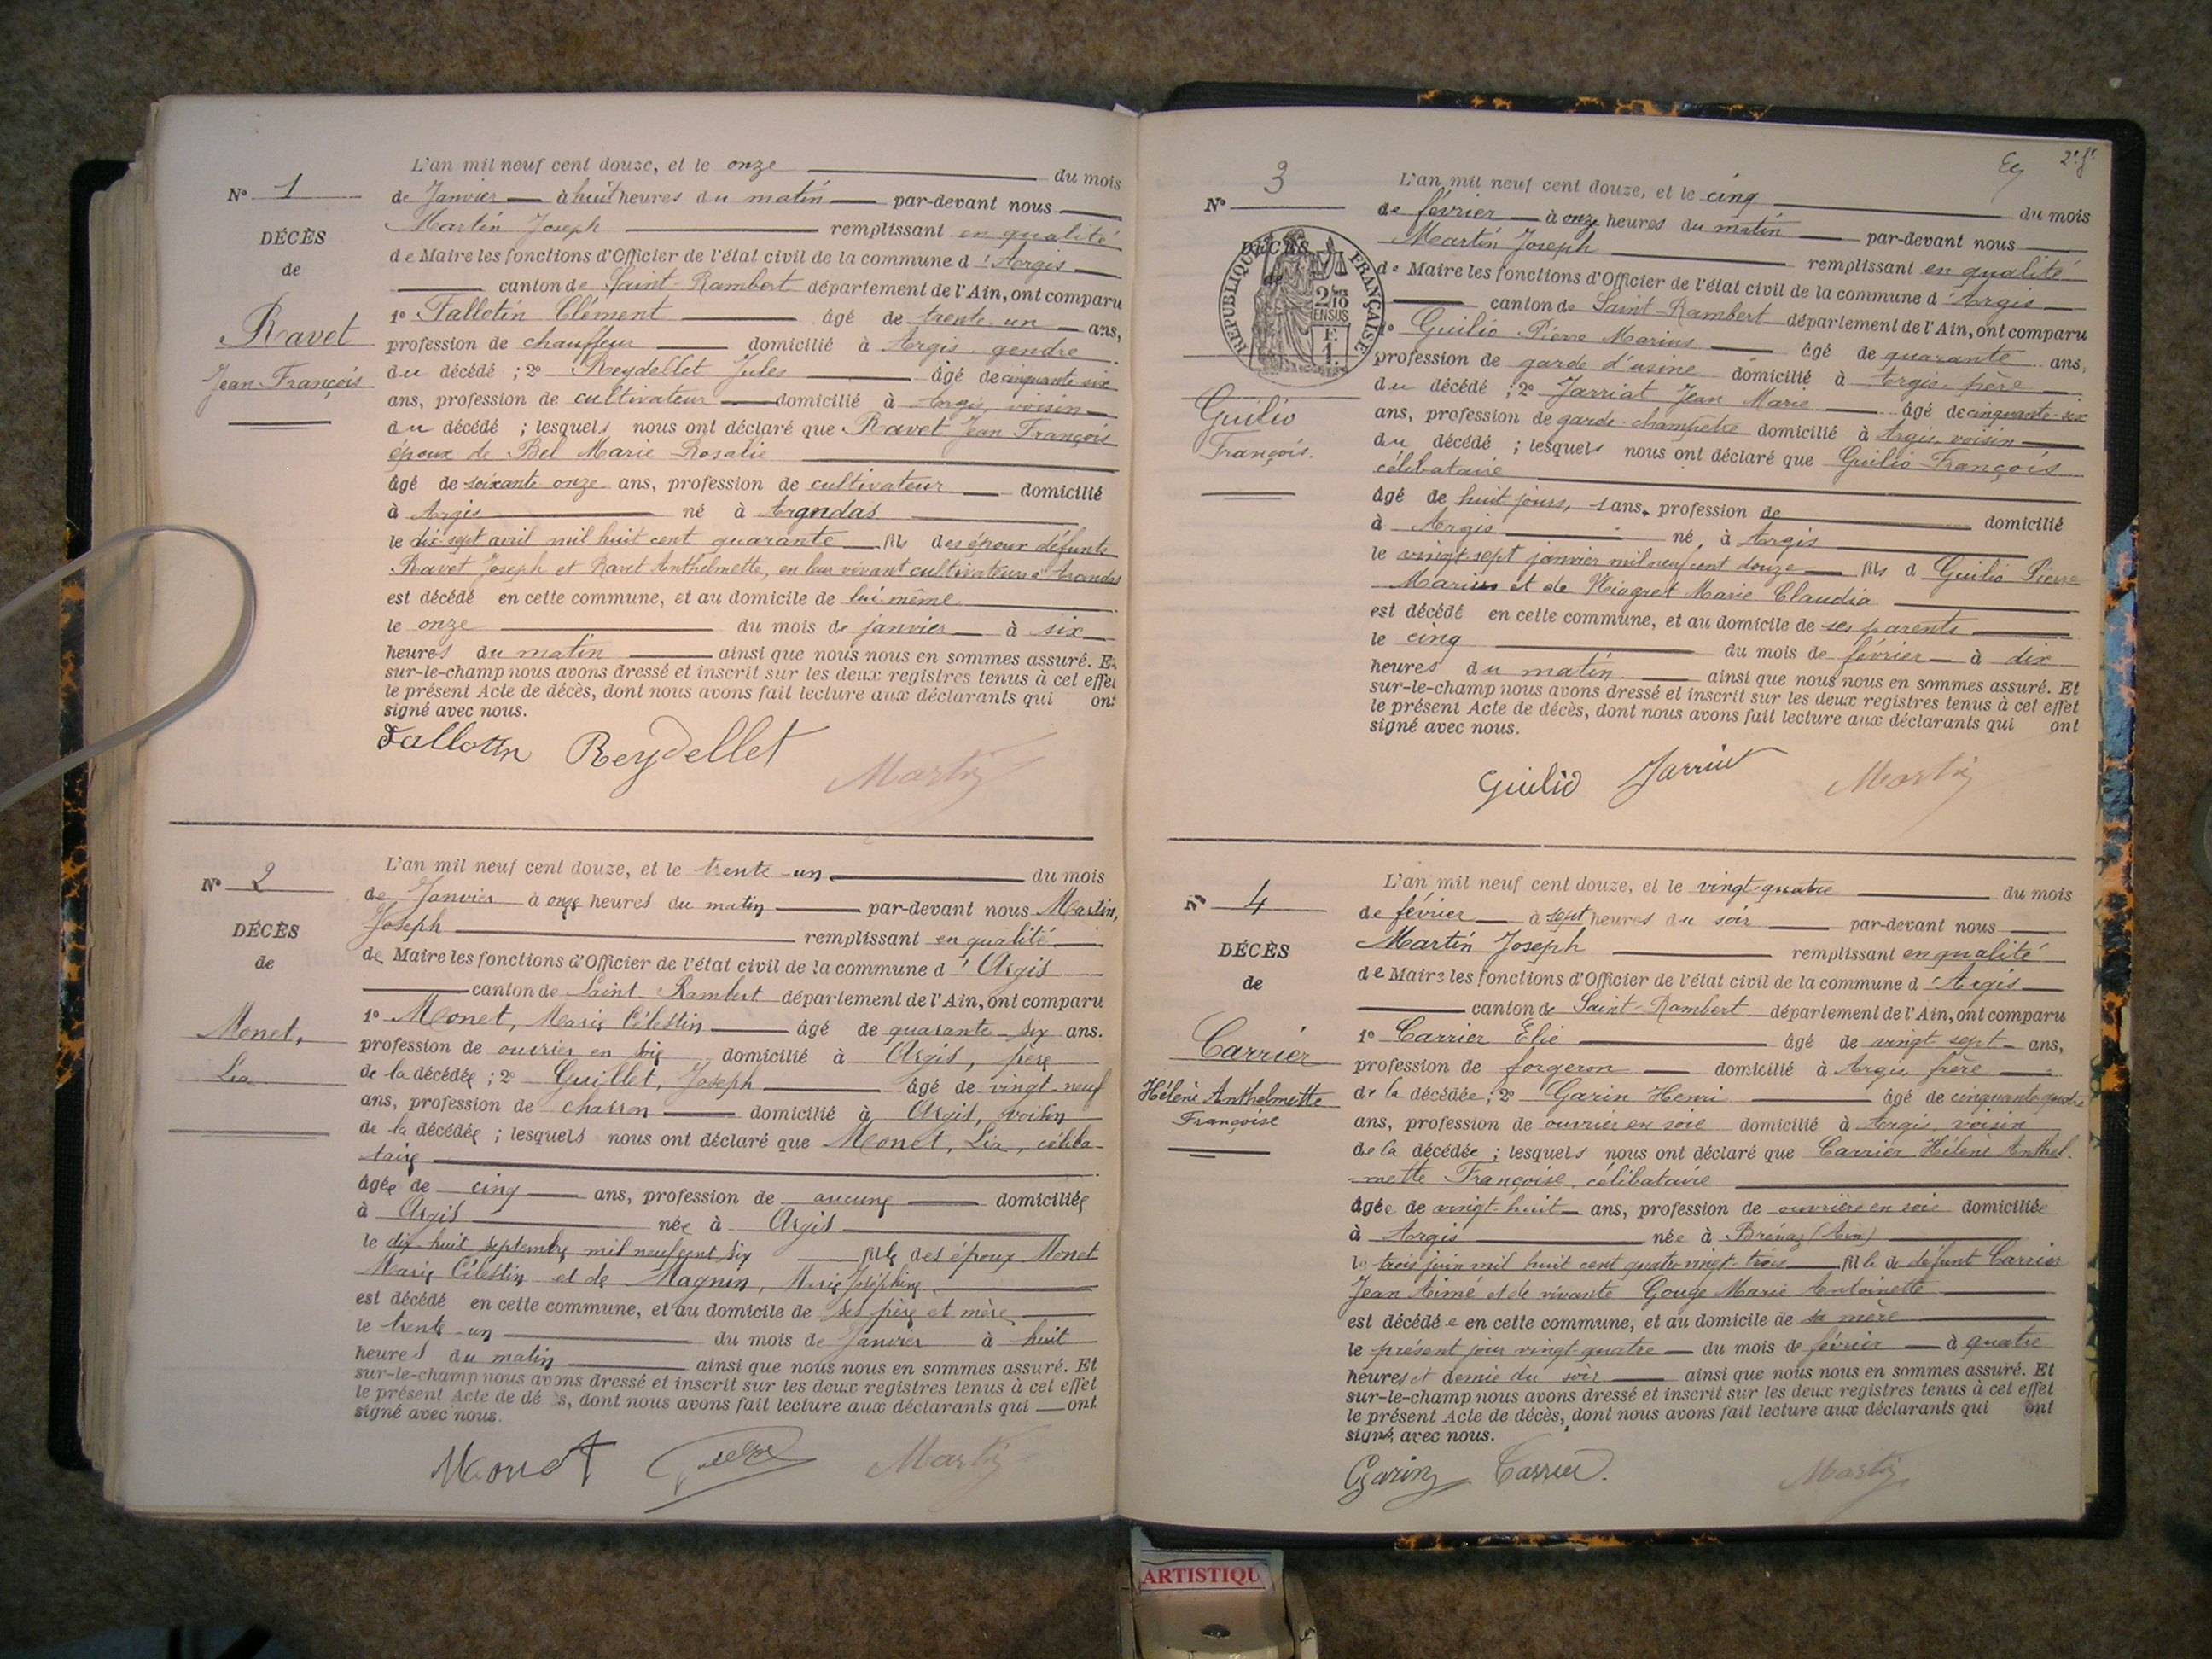 L'an mil neuf cent douze, et le onze du mois
N° 1
de Janvier à huit heures du matin par-devant nous
Martin Joseph remplissant en qualité
DÉCÈS
de Maire les fonctions d'Officier de l'état civil de la commune d'Argis
de
canton de Saint-Rambert département de l'Ain, ont comparu
1° Fallotin Clément âgé de trente-un ans,
Ravet
profession de chauffeur domicilié à Argis, gendre
Jean-François
du décédé ; 2° Reydellet Jules âgé de cinquante six
ans, profession de cultivateur domicilié à Argis, voisin
du décédé ; lesquels nous ont déclaré que Ravet Jean François
époux de Bel Marie Rosalie
âgé de soixante onze ans, profession de cultivateur domicilié
à Argis né à Arandas
le dix-sept avril mil huit cent quarante fils des époux défunts
Ravet Joseph et Ravet Anthelmette, en leur vivant cultivateurs à Arandas
est décédé en cette commune, et au domicile de lui-même
le onze du mois de janvier à six
heures du matin ainsi que nous nous en sommes assuré. Et
sur-le-champ nous avons dressé et inscrit sur les deux registres tenus à cet effet
le présent Acte de décès, dont nous avons fait lecture aux déclarants qui ont
signé avec nous.
Fallotin Reydellet Martin
L'an mil neuf cent douze, et le trente-un du mois
N° 2
de Janvier à onze heures du matin par-devant nous Martin,
Joseph remplissant en qualité
DÉCÈS
de Maire les fonctions d'Officier de l'état civil de la commune d'Argis
de
canton de Saint-Rambert département de l'Ain, ont comparu
1° Monet, Marie Célestin âgé de quarante-six ans.
Monet,
profession de ouvrier en soie domicilié à Argis, père
Léa
de la décédée ; 2° Guillet, Joseph âgé de vingt-neuf
ans, profession de charron domicilié à Argis, voisin
de la décédée ; lesquels nous ont déclaré que Monet, Léa, céliba-
taire
âgée de cinq ans, profession de aucune domiciliée
à Argis née à Argis
le dix-huit septembre mil neuf cent six fille des époux Monet
Marie Célestin et de Magnin, Marie Joséphine
est décédé en cette commune, et au domicile de ses père et mère
le trente-un du mois de Janvier à huit
heures du matin ainsi que nous nous en sommes assuré. Et
sur-le-champ nous avons dressé et inscrit sur les deux registres tenus à cet effet
le présent Acte de décès, dont nous avons fait lecture aux déclarants qui ont
signé avec nous.
Monet Martin
2e f.
L'an mil neuf cent douze, et le cinq du mois
N° 3
de février à onze heures du matin par-devant nous
Martin Joseph remplissant en qualité
DÉCÈS
de Maire les fonctions d'Officier de l'état civil de la commune d'Argis
de
RÉPUBLIQUE FRANÇAISE
2/10 EN SUS
F. 1.
canton de Saint-Rambert département de l'Ain, ont comparu
1° Guilio Pierre Marius âgé de quarante ans,
profession de garde d'usine domicilié à Argis, père
du décédé ; 2° Jarriat Jean Marie âgé de cinquante-six
Guilio
ans, profession de garde-champêtre domicilié à Argis, voisin
François.
du décédé ; lesquels nous ont déclaré que Guilio François
célibataire
âgé de huit jours, sans profession de domicilié
à Argis né à Argis
le vingt-sept janvier mil neuf cent douze fils d Guilio Pierre
Marius et de Marie Claudia
est décédé en cette commune, et au domicile de ses parents
le cinq du mois de février à dix
heures du matin ainsi que nous nous en sommes assuré. Et
sur-le-champ nous avons dressé et inscrit sur les deux registres tenus à cet effet
le présent Acte de décès, dont nous avons fait lecture aux déclarants qui ont
signé avec nous.
Guilio Jarriat Martin
L'an mil neuf cent douze, et le vingt-quatre du mois
N° 4
de février à sept heures du soir par-devant nous
Martin Joseph remplissant en qualité
DÉCÈS
de Maire les fonctions d'Officier de l'état civil de la commune d'Argis
de
canton de Saint-Rambert département de l'Ain, ont comparu
1° Carrier Elie âgé de vingt sept ans,
Carrier
profession de forgeron domicilié à Argis, frère
Hélène Anthelmette
de la décédée ; 2° Garin Henri âgé de cinquante quatre
Françoise
ans, profession de ouvrier en soie domicilié à Argis, voisin
de la décédée ; lesquels nous ont déclaré que Carrier Hélène Anthel-
mette Françoise, célibataire
âgée de vingt-huit ans, profession de ouvrière en soie domiciliée
à Argis née à Brénaz (Ain)
le trois juin mil huit cent quatre vingt-trois fille de défunt Carrier
Jean Aimé et de vivante Gouge Marie Antoinette
est décédée en cette commune, et au domicile de sa mère
le présent jour vingt-quatre du mois de février à quatre
heures et demie du soir ainsi que nous nous en sommes assuré. Et
sur-le-champ nous avons dressé et inscrit sur les deux registres tenus à cet effet
le présent Acte de décès, dont nous avons fait lecture aux déclarants qui ont
signé avec nous.
Garin Carrier. Martin
ARTISTIQU